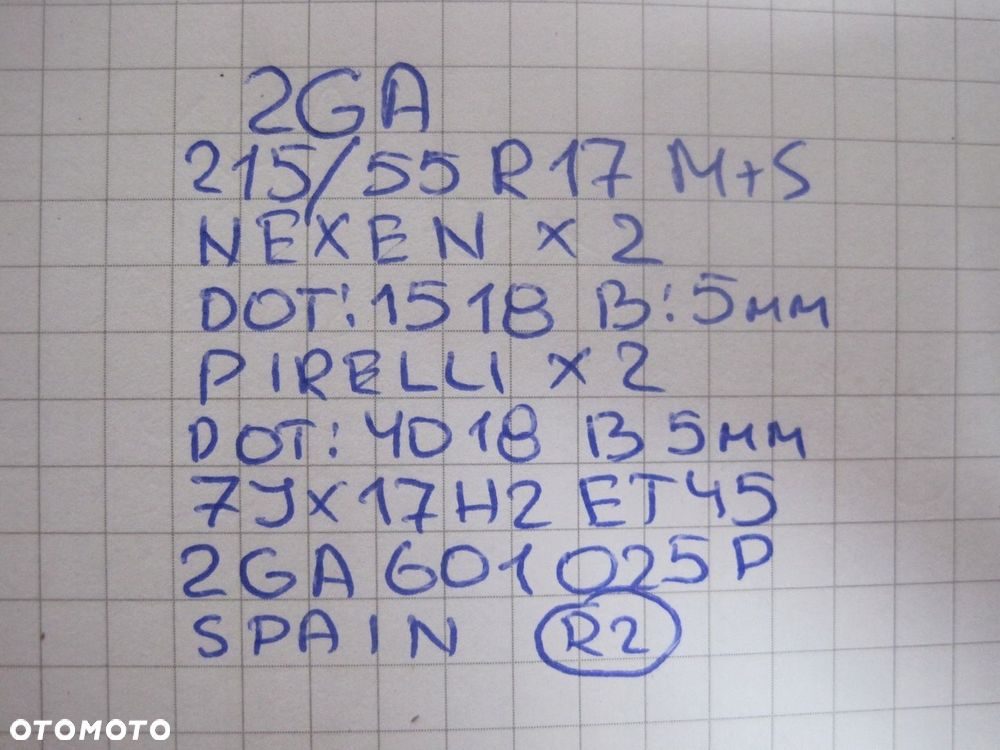 2GA
215/55 R17 M+S
NEXEN x 2
DOT:1518 B:5мм
PIRELLI x 2
DOT:4018 B 5мм
7Jx17H2 ET45
2GA 601 025P
SPAIN R2
OTOMOTO